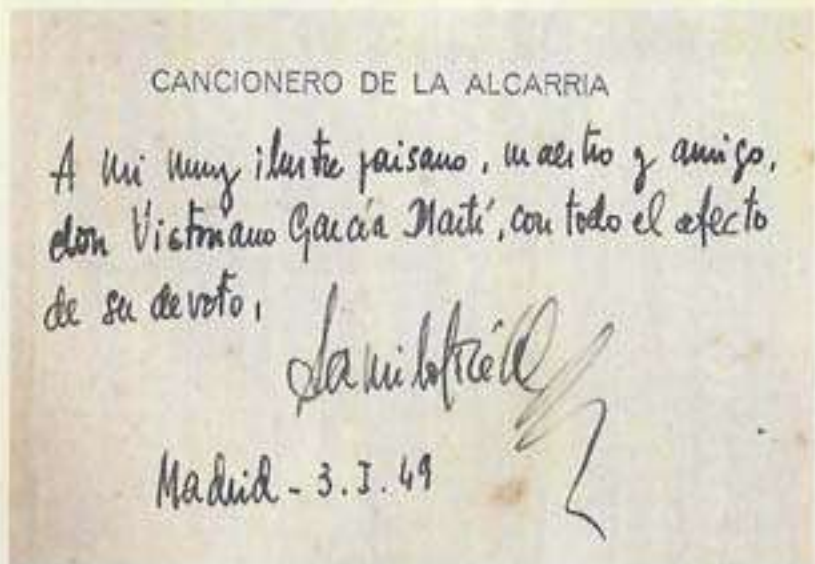 CANCIONERO DE LA ALCARRIA
A mi muy ilustre paisano, maestro y amigo,
don Victoriano García Martí, con todo el afecto
de su devoto,
Camilo José Cela
Madrid - 3.I.49